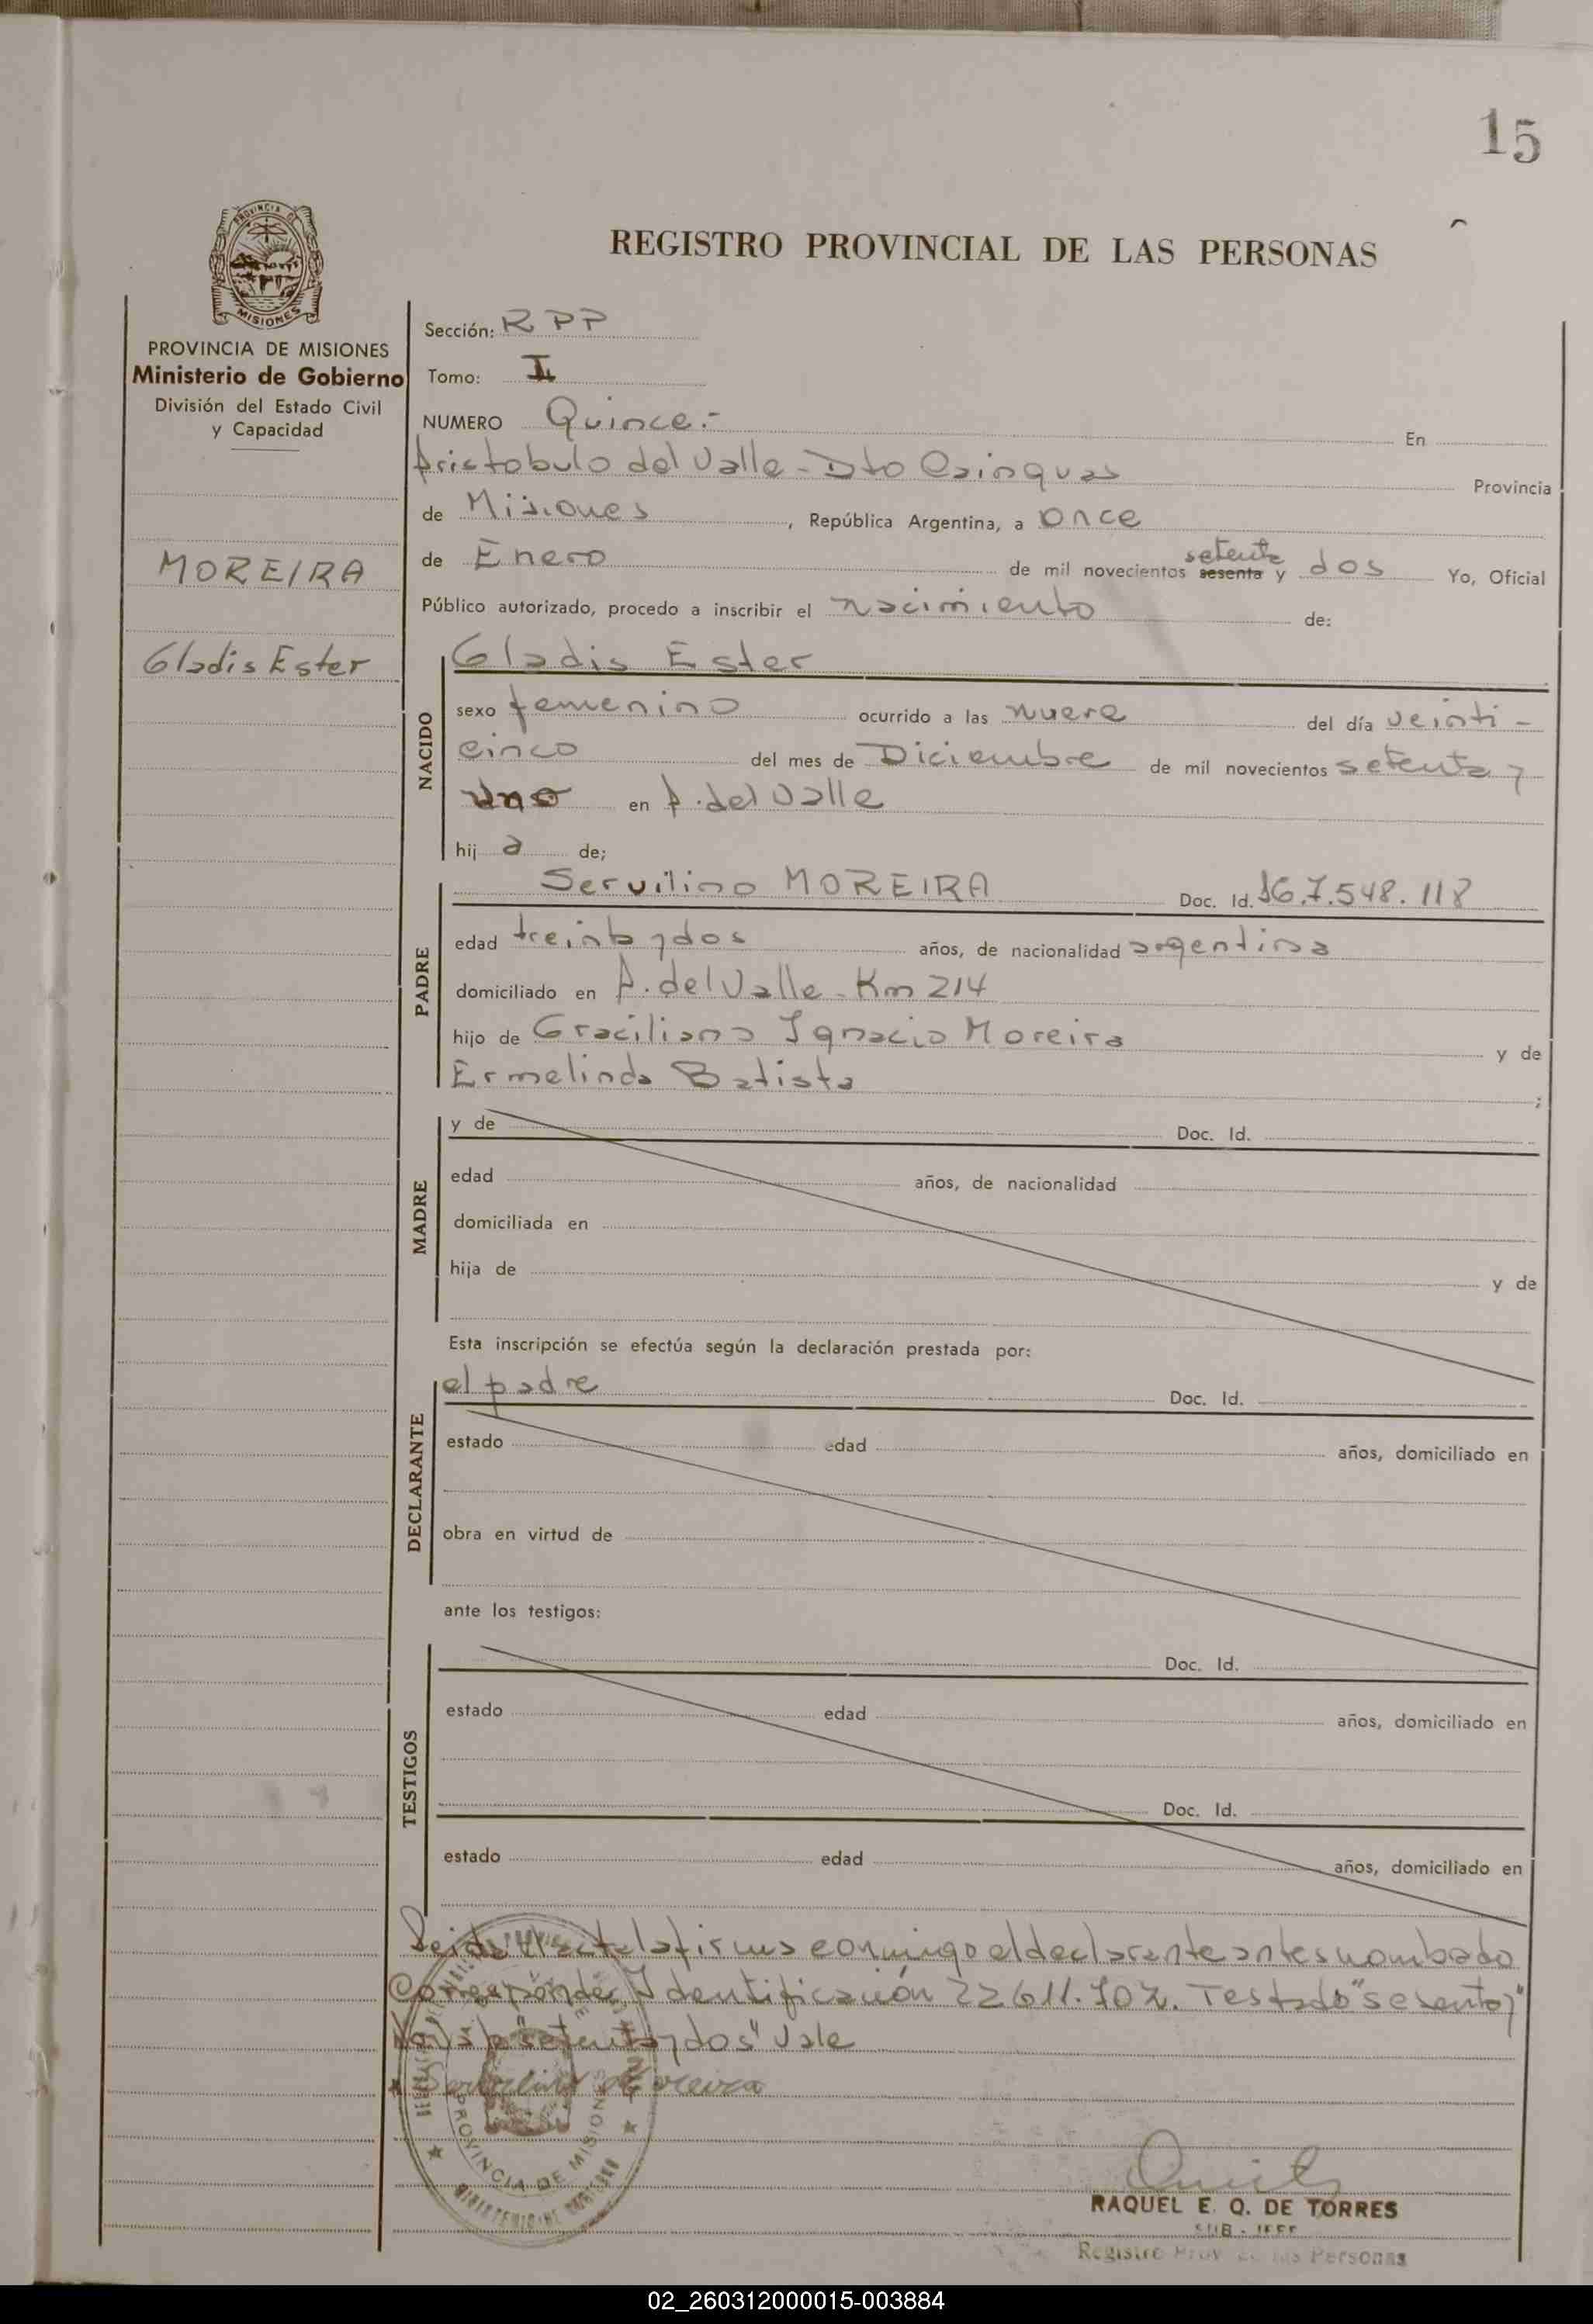 15
REGISTRO PROVINCIAL DE LAS PERSONAS
PROVINCIA DE MISIONES
Ministerio de Gobierno
División del Estado Civil
y Capacidad
MOREIRA
Gladis Ester
Sección: RPP
Tomo: I
NUMERO Quince.- En
Aristobulo del Valle - Dto Cainguas Provincia
de Misiones, República Argentina, a once
de Enero de mil novecientos sesenta setenta y dos Yo, Oficial
Público autorizado, procedo a inscribir el nacimiento de:
NACIDO
Gladis Ester
sexo femenino ocurrido a las nueve del día veinti-
cinco del mes de Diciembre de mil novecientos setenta y
uno en A. del Valle
hij a de;
PADRE
Servilino MOREIRA Doc. Id. 7.548.118
edad treinta y dos años, de nacionalidad argentina
domiciliado en A. del Valle - Km 214
hijo de Graciliano Ignacio Moreira y de
Ermelinda Batista ;
MADRE
y de Doc. Id.
edad años, de nacionalidad
domiciliada en
hija de y de
Esta inscripción se efectúa según la declaración prestada por:
DECLARANTE
el padre Doc. Id.
estado edad años, domiciliado en
obra en virtud de
ante los testigos:
TESTIGOS
Doc. Id.
estado edad años, domiciliado en
Doc. Id.
estado edad años, domiciliado en
Leida el acta la firma conmigo el declarante antes nombrado
Corresponde Identificación 22611.707. Testado "sesenta y"
No vale "setenta y dos" Vale
Servilino Moreira
PROVINCIA DE MISIONES
RAQUEL E. Q. DE TORRES
SUB - JEFE
Registro Prov de las Personas
02_260312000015-003884